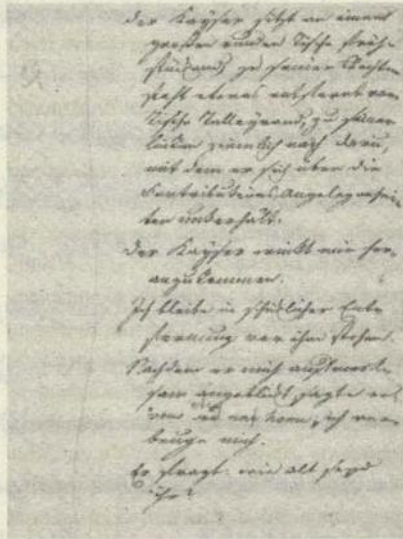 Der Kayser sitzt an einem
großen runden Tische früh-
stückend; zu seiner Rechten
steht etwas entfernt vom
Tische Talleyrand, zu seiner
Linken ziemlich nach Daru,
mit dem er sich über die
Contributions Angelegenhei-
ten unterhält.
Der Kayser winkt mir her-
anzukommen.
Ich bleibe in schicklicher Ent-
fernung vor ihm stehen.
Nachdem er mich aufmerk-
sam angeblickt sagte er:
vous homme, ich ver-
beuge mich.
Er fragt: wie alt seyd
ihr?